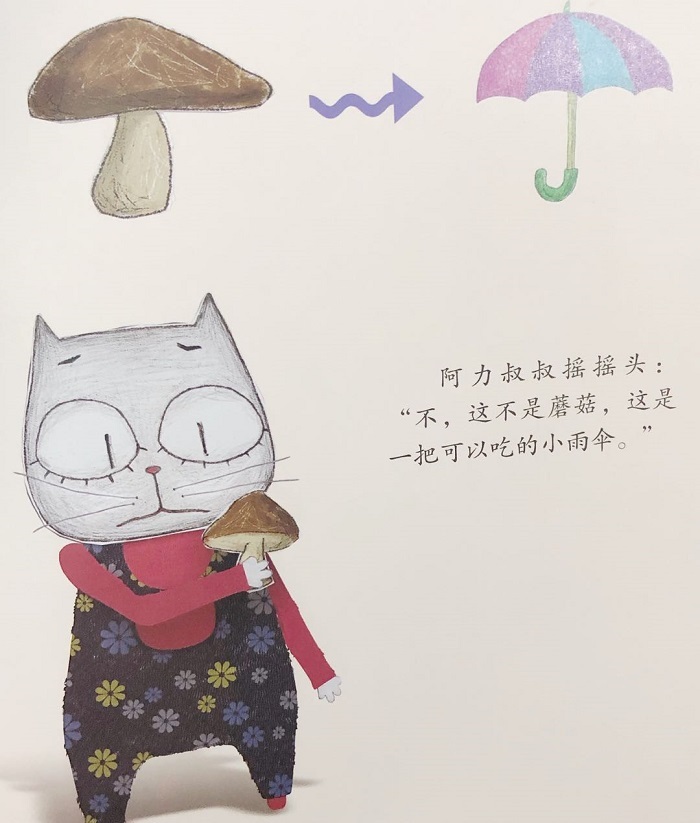 阿力叔叔摇摇头：
“不，这不是蘑菇，这是
一把可以吃的小雨伞。”